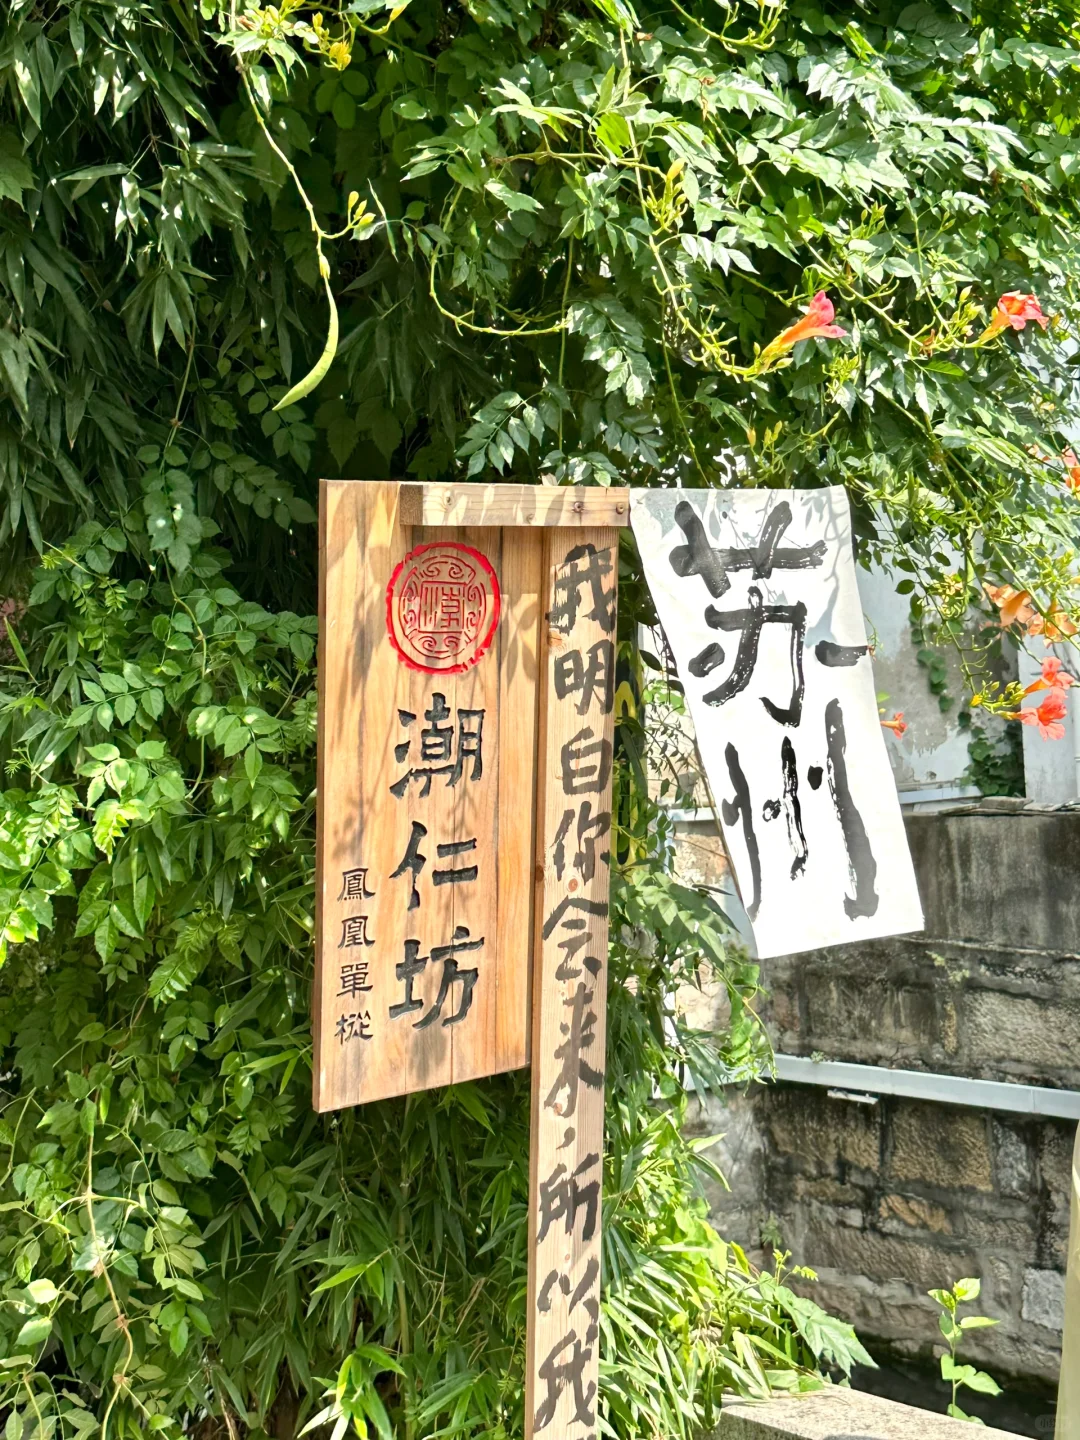 潮
潮仁坊
鳳凰單樅
我明白你会来，所以我
苏州